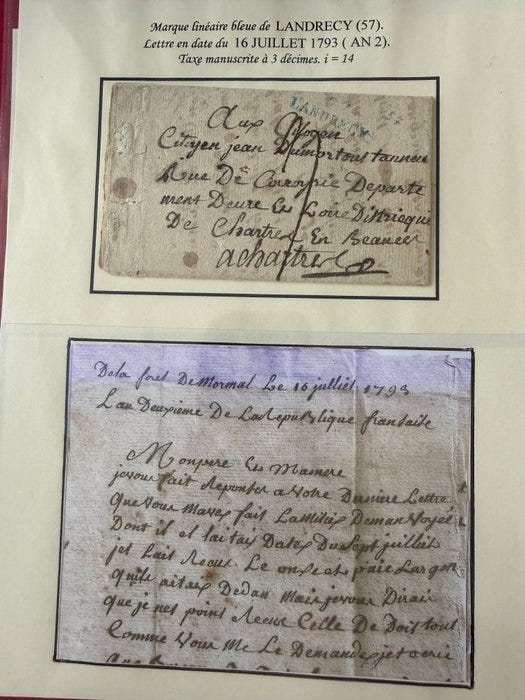 Marque linéaire bleue de LANDRECY (57).
Lettre en date du 16 JUILLET 1793 ( AN 2).
Taxe manuscrite à 3 décimes. i = 14
LANDRECY
Aux Citoyen
Citoyen jean Dumortous tanneur
Rue De Departe
ment Deure Es Loire Districque
De Chartres En Beauces
a chartres
De la foret De Mormal Le 16 juillet 1793
Lan Deuxieme De La Republique fransaise
Monpere Es Mamere
je vous fait Reponse a Votre Derniere Lettre
Que Vous Maves fait Lamitiés Deman Voyés
Dont il et Datés Du Sept juillet
jes Lait Recus Le onse et
quils Dedan Mais je vous Dirais
que je nes point Recus Celle De Doit tout
Comme Vous Me Le Demandes